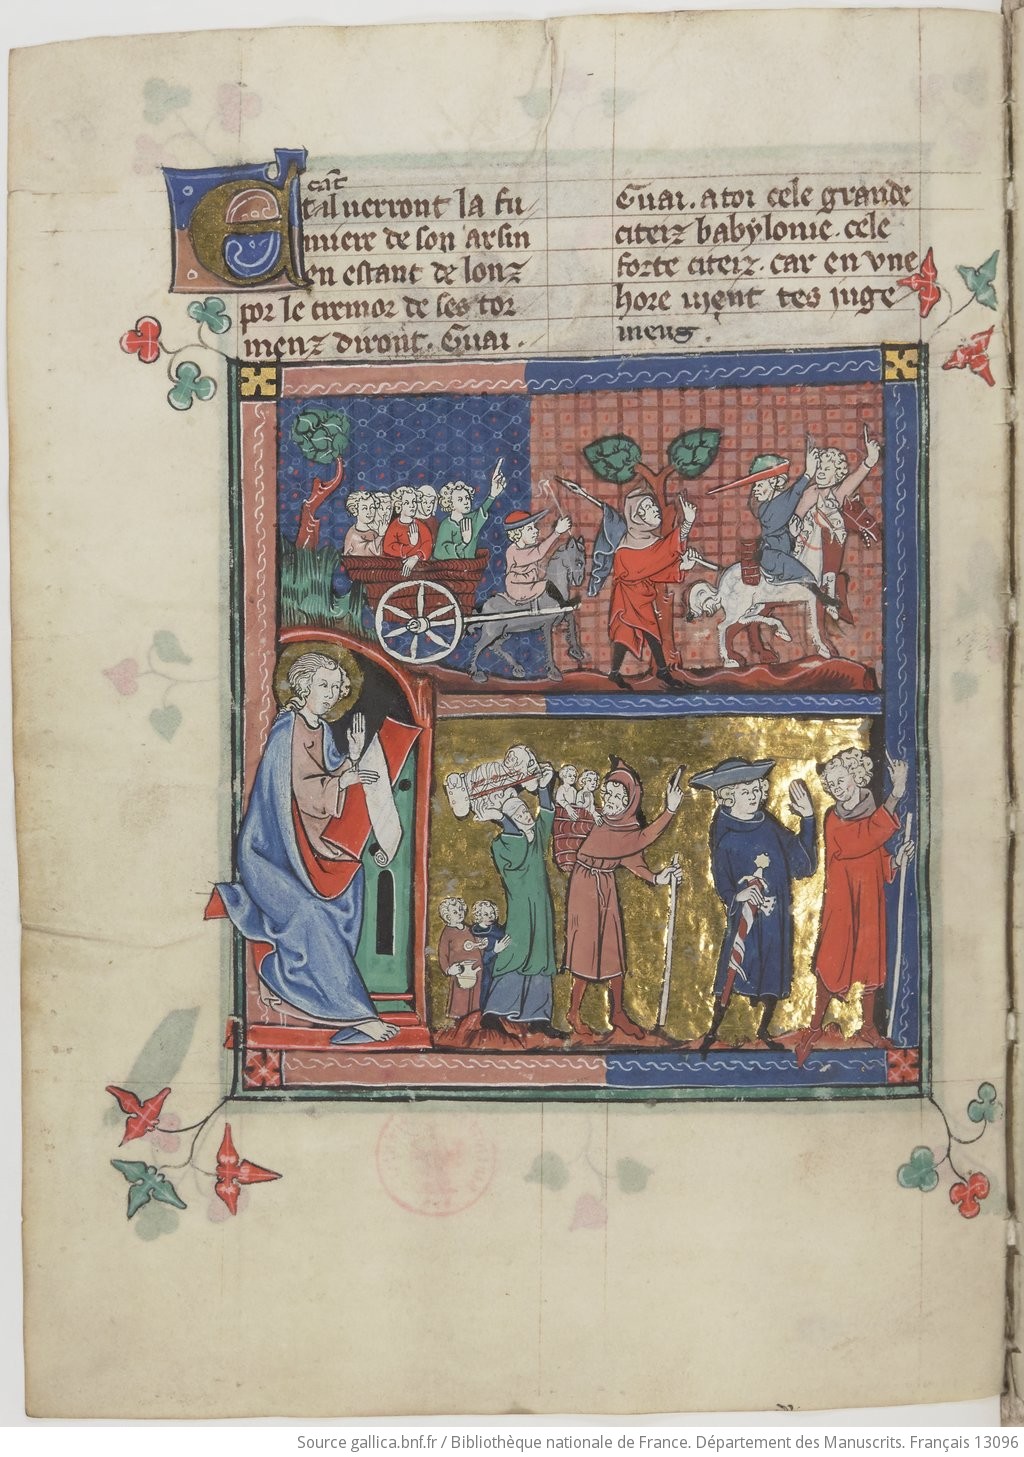 E
cāt
t il uerront la fu
miere de son arsin
en estant de lonz
por le cremor de ses tor
menz diront. Guai.
Guai. a toi cele grande
citeiz babylonie. cele
forte citeiz. car en vne
hore uient tes iuge
menz.
Source gallica.bnf.fr / Bibliothèque nationale de France. Département des Manuscrits. Français 13096